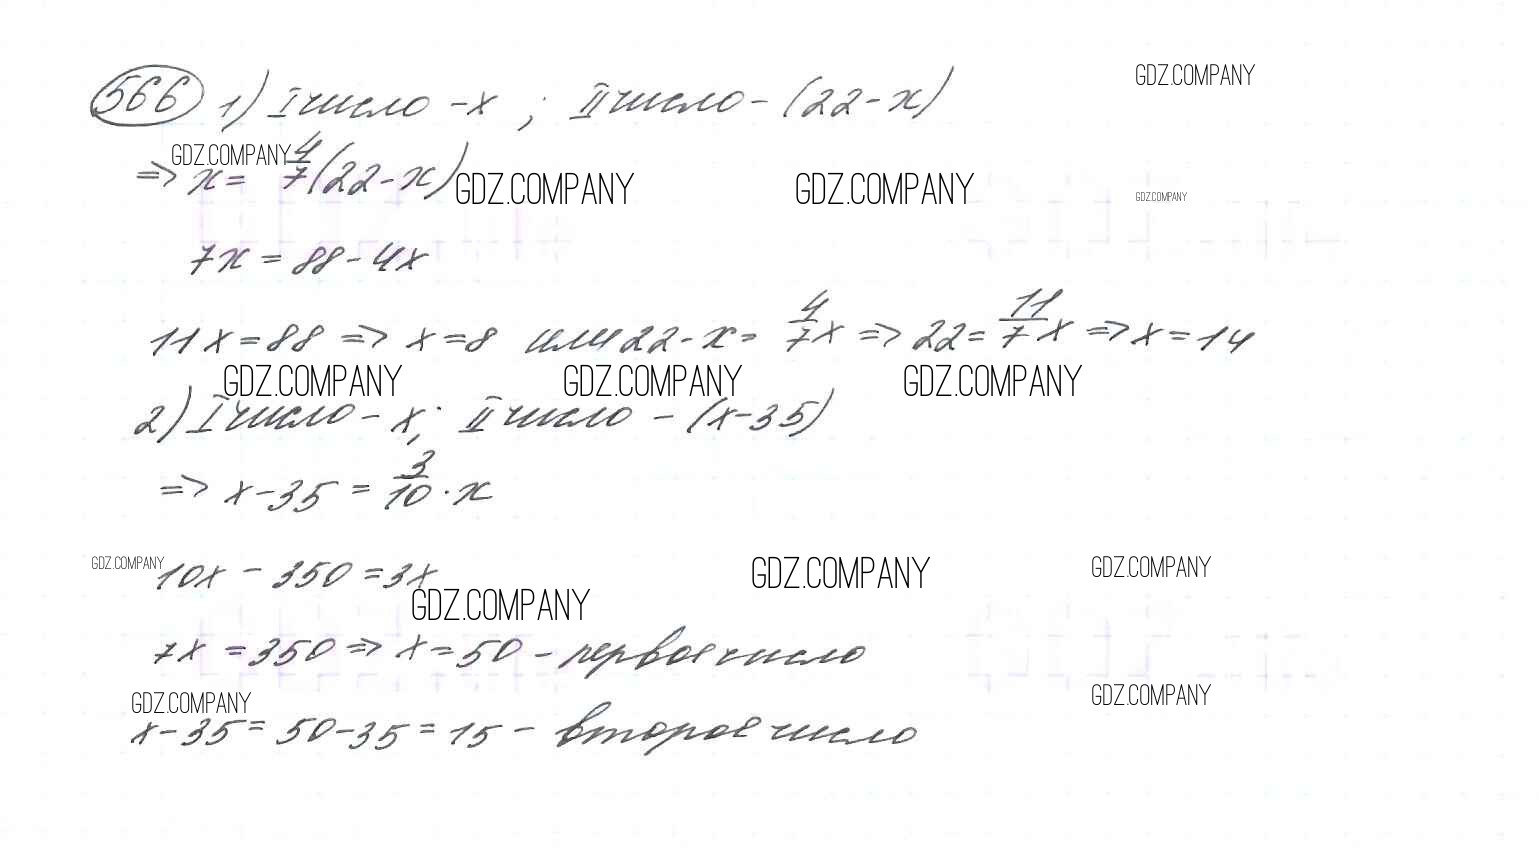 566 1) I число - x ; II число - (22 - x) GDZ.COMPANY
GDZ.COMPANY
=> x = 4/7 (22 - x) GDZ.COMPANY GDZ.COMPANY GDZ.COMPANY
7x = 88 - 4x
11x = 88 => x = 8 или 22 - x = 4/7 x => 22 = 11/7 x => x = 14
GDZ.COMPANY GDZ.COMPANY GDZ.COMPANY
2) I число - x; II число - (x - 35)
=> x - 35 = 3/10 · x
GDZ.COMPANY GDZ.COMPANY GDZ.COMPANY
10x - 350 = 3x
GDZ.COMPANY
7x = 350 => x = 50 - первое число
GDZ.COMPANY GDZ.COMPANY
x - 35 = 50 - 35 = 15 - второе число